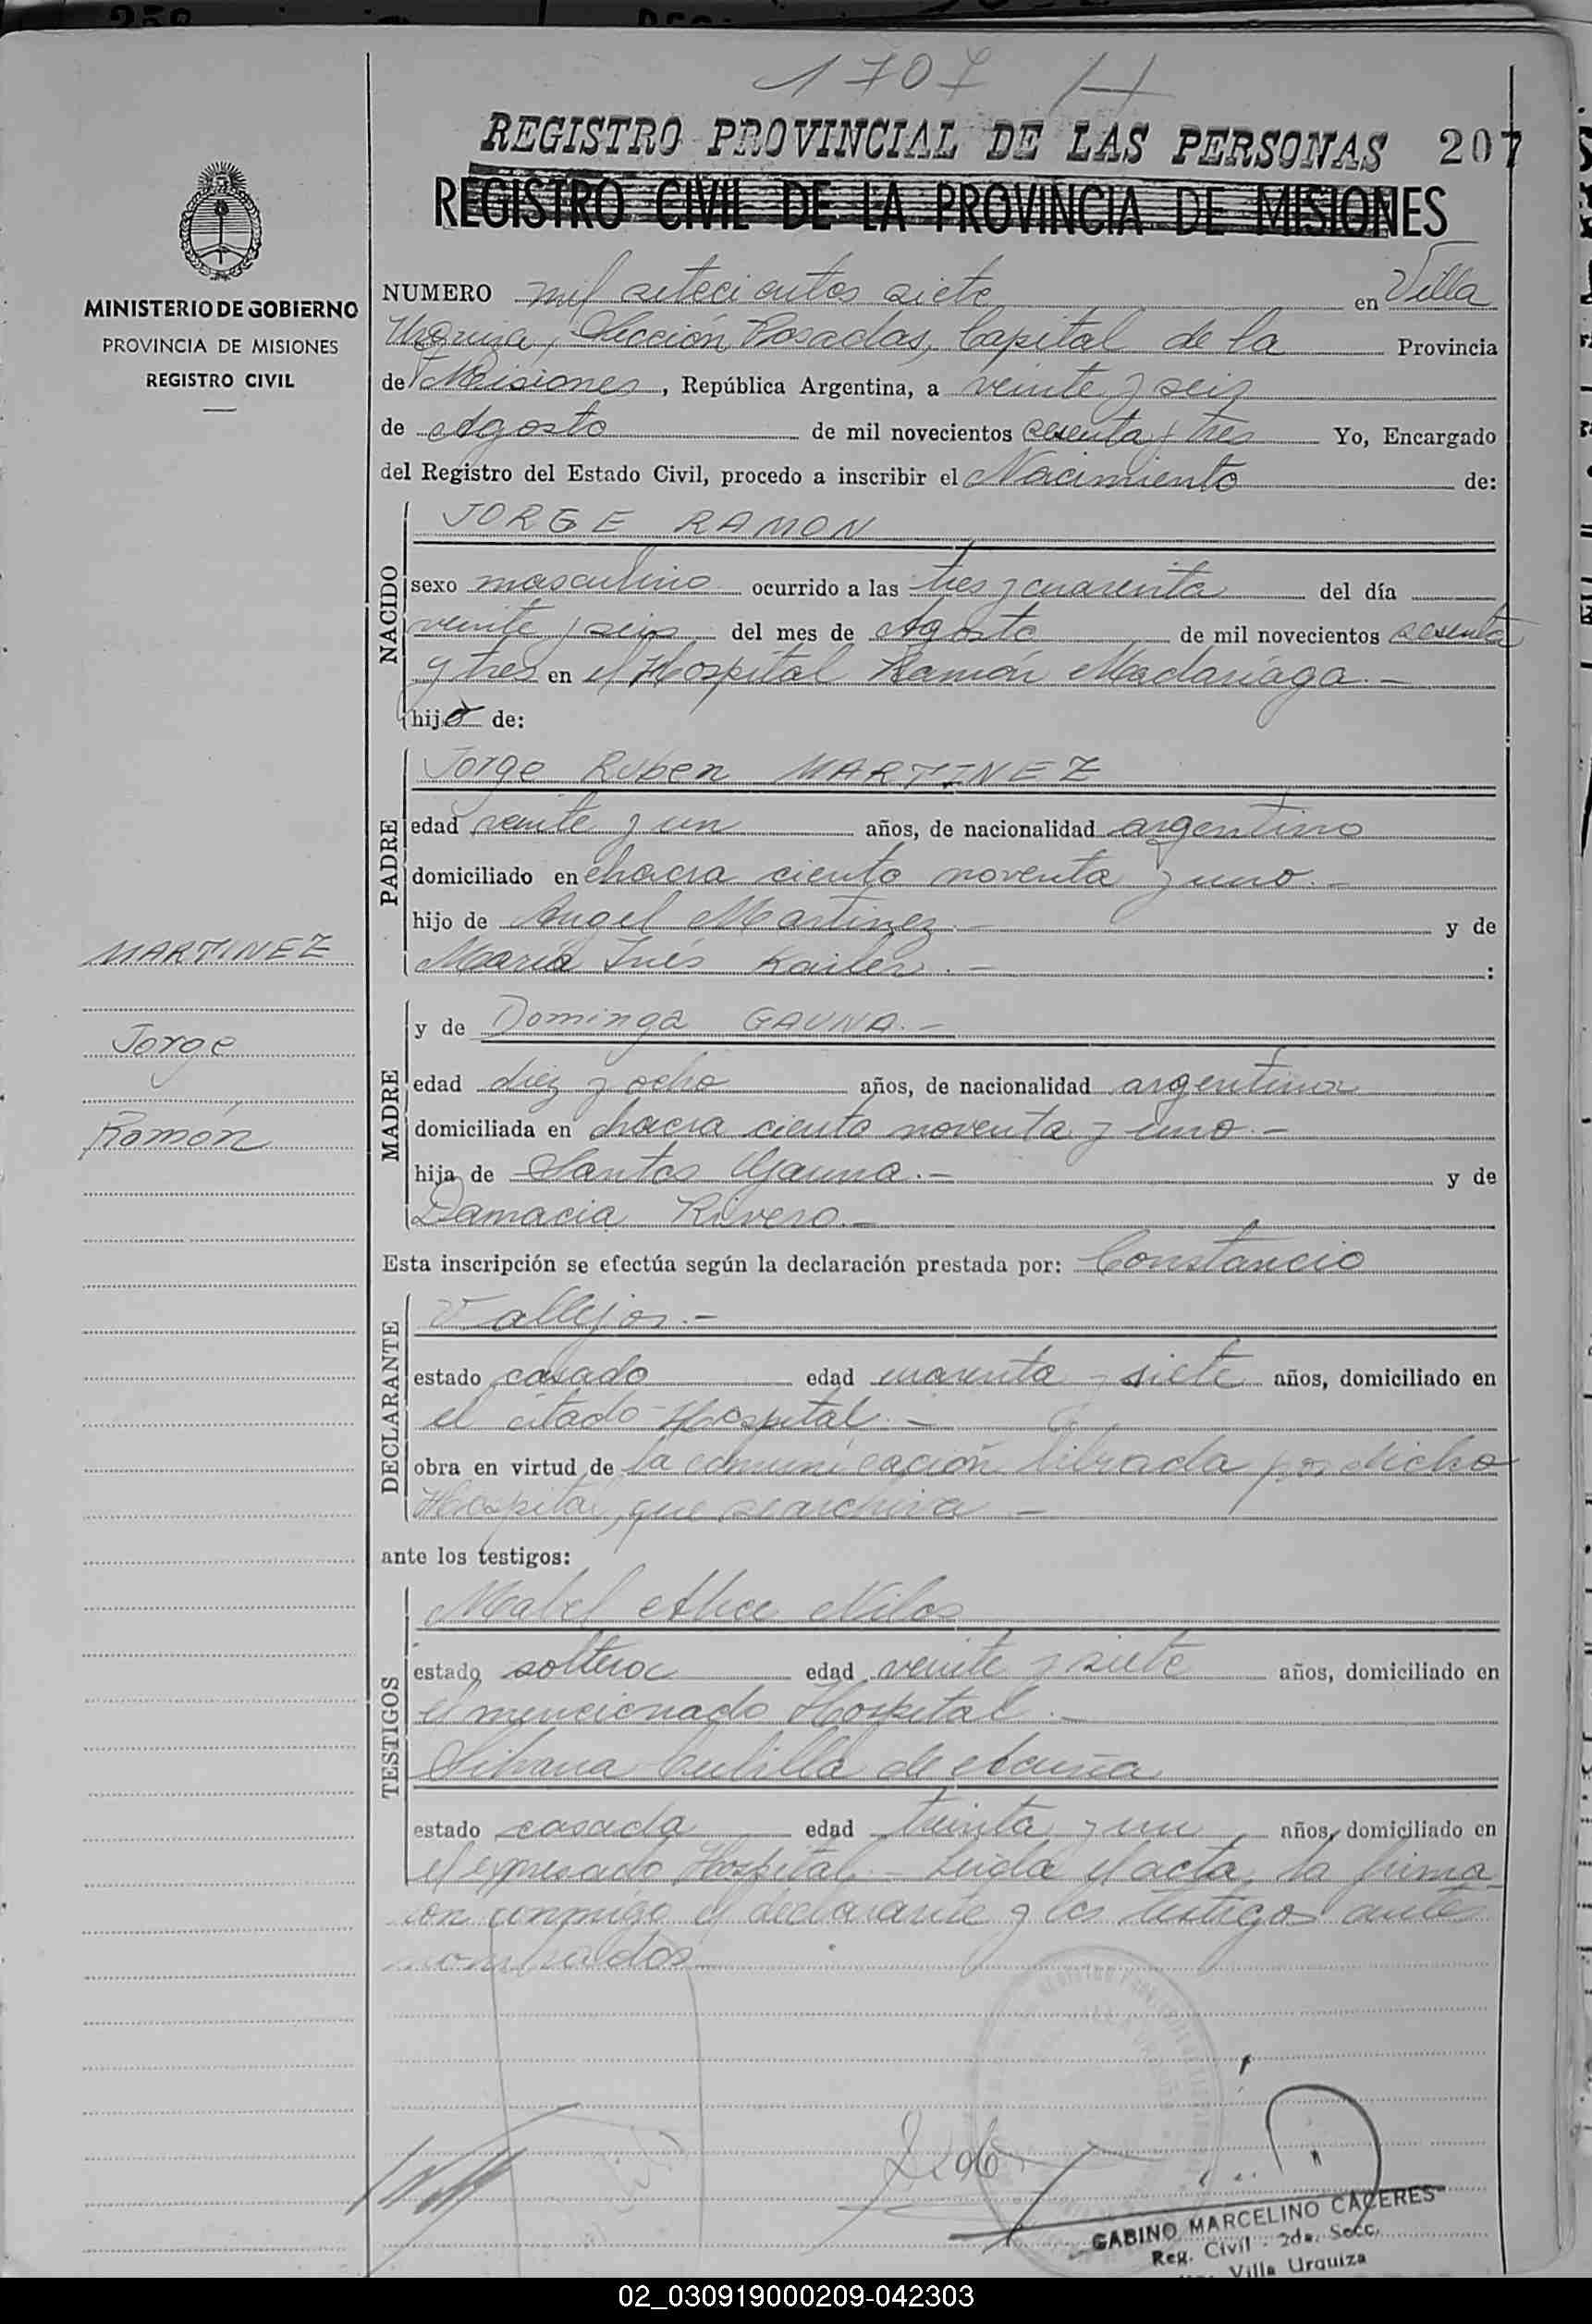 1707 H
REGISTRO PROVINCIAL DE LAS PERSONAS 207
REGISTRO CIVIL DE LA PROVINCIA DE MISIONES
MINISTERIO DE GOBIERNO
PROVINCIA DE MISIONES
REGISTRO CIVIL
NUMERO mil setecientos siete en Villa
Urquiza, Sección Posadas, Capital de la Provincia
de Misiones, República Argentina, a veinte y seis
de Agosto de mil novecientos sesenta y tres Yo, Encargado
del Registro del Estado Civil, procedo a inscribir el Nacimiento de:
NACIDO
JORGE RAMON
sexo masculino ocurrido a las tres y cuarenta del día
veinte y seis del mes de Agosto de mil novecientos sesenta
y tres en el Hospital Ramón Madariaga.-
hijo de:
PADRE
Jorge Ruben MARTINEZ
edad veinte y un años, de nacionalidad argentino
domiciliado en chacra ciento noventa y uno.-
hijo de Angel Martinez.- y de
María Inés Kailer.- :
MARTINEZ
Jorge
Ramón
MADRE
y de Dominga GAUNA.-
edad diez y ocho años, de nacionalidad argentina
domiciliada en chacra ciento noventa y uno.-
hija de Santos Gauna.- y de
Damacia Rivero.-
Esta inscripción se efectúa según la declaración prestada por: Constancio
DECLARANTE
Vallejos.-
estado casado edad cuarenta y siete años, domiciliado en
el citado Hospital.-
obra en virtud de la comunicación librada por dicho
Hospital, que se archiva -
ante los testigos:
TESTIGOS
Mabel Alice
estado soltera edad veinte y siete años, domiciliado en
el mencionado Hospital.-
Silvana de Acuña
estado casada edad treinta y un años, domiciliado en
el expresado Hospital.- Leída el acta, la firma
con conmigo el declarante y los testigos antes
nombrados
GABINO MARCELINO CACERES
Reg. Civil - 2da. Secc.
Villa Urquiza
02_030919000209-042303